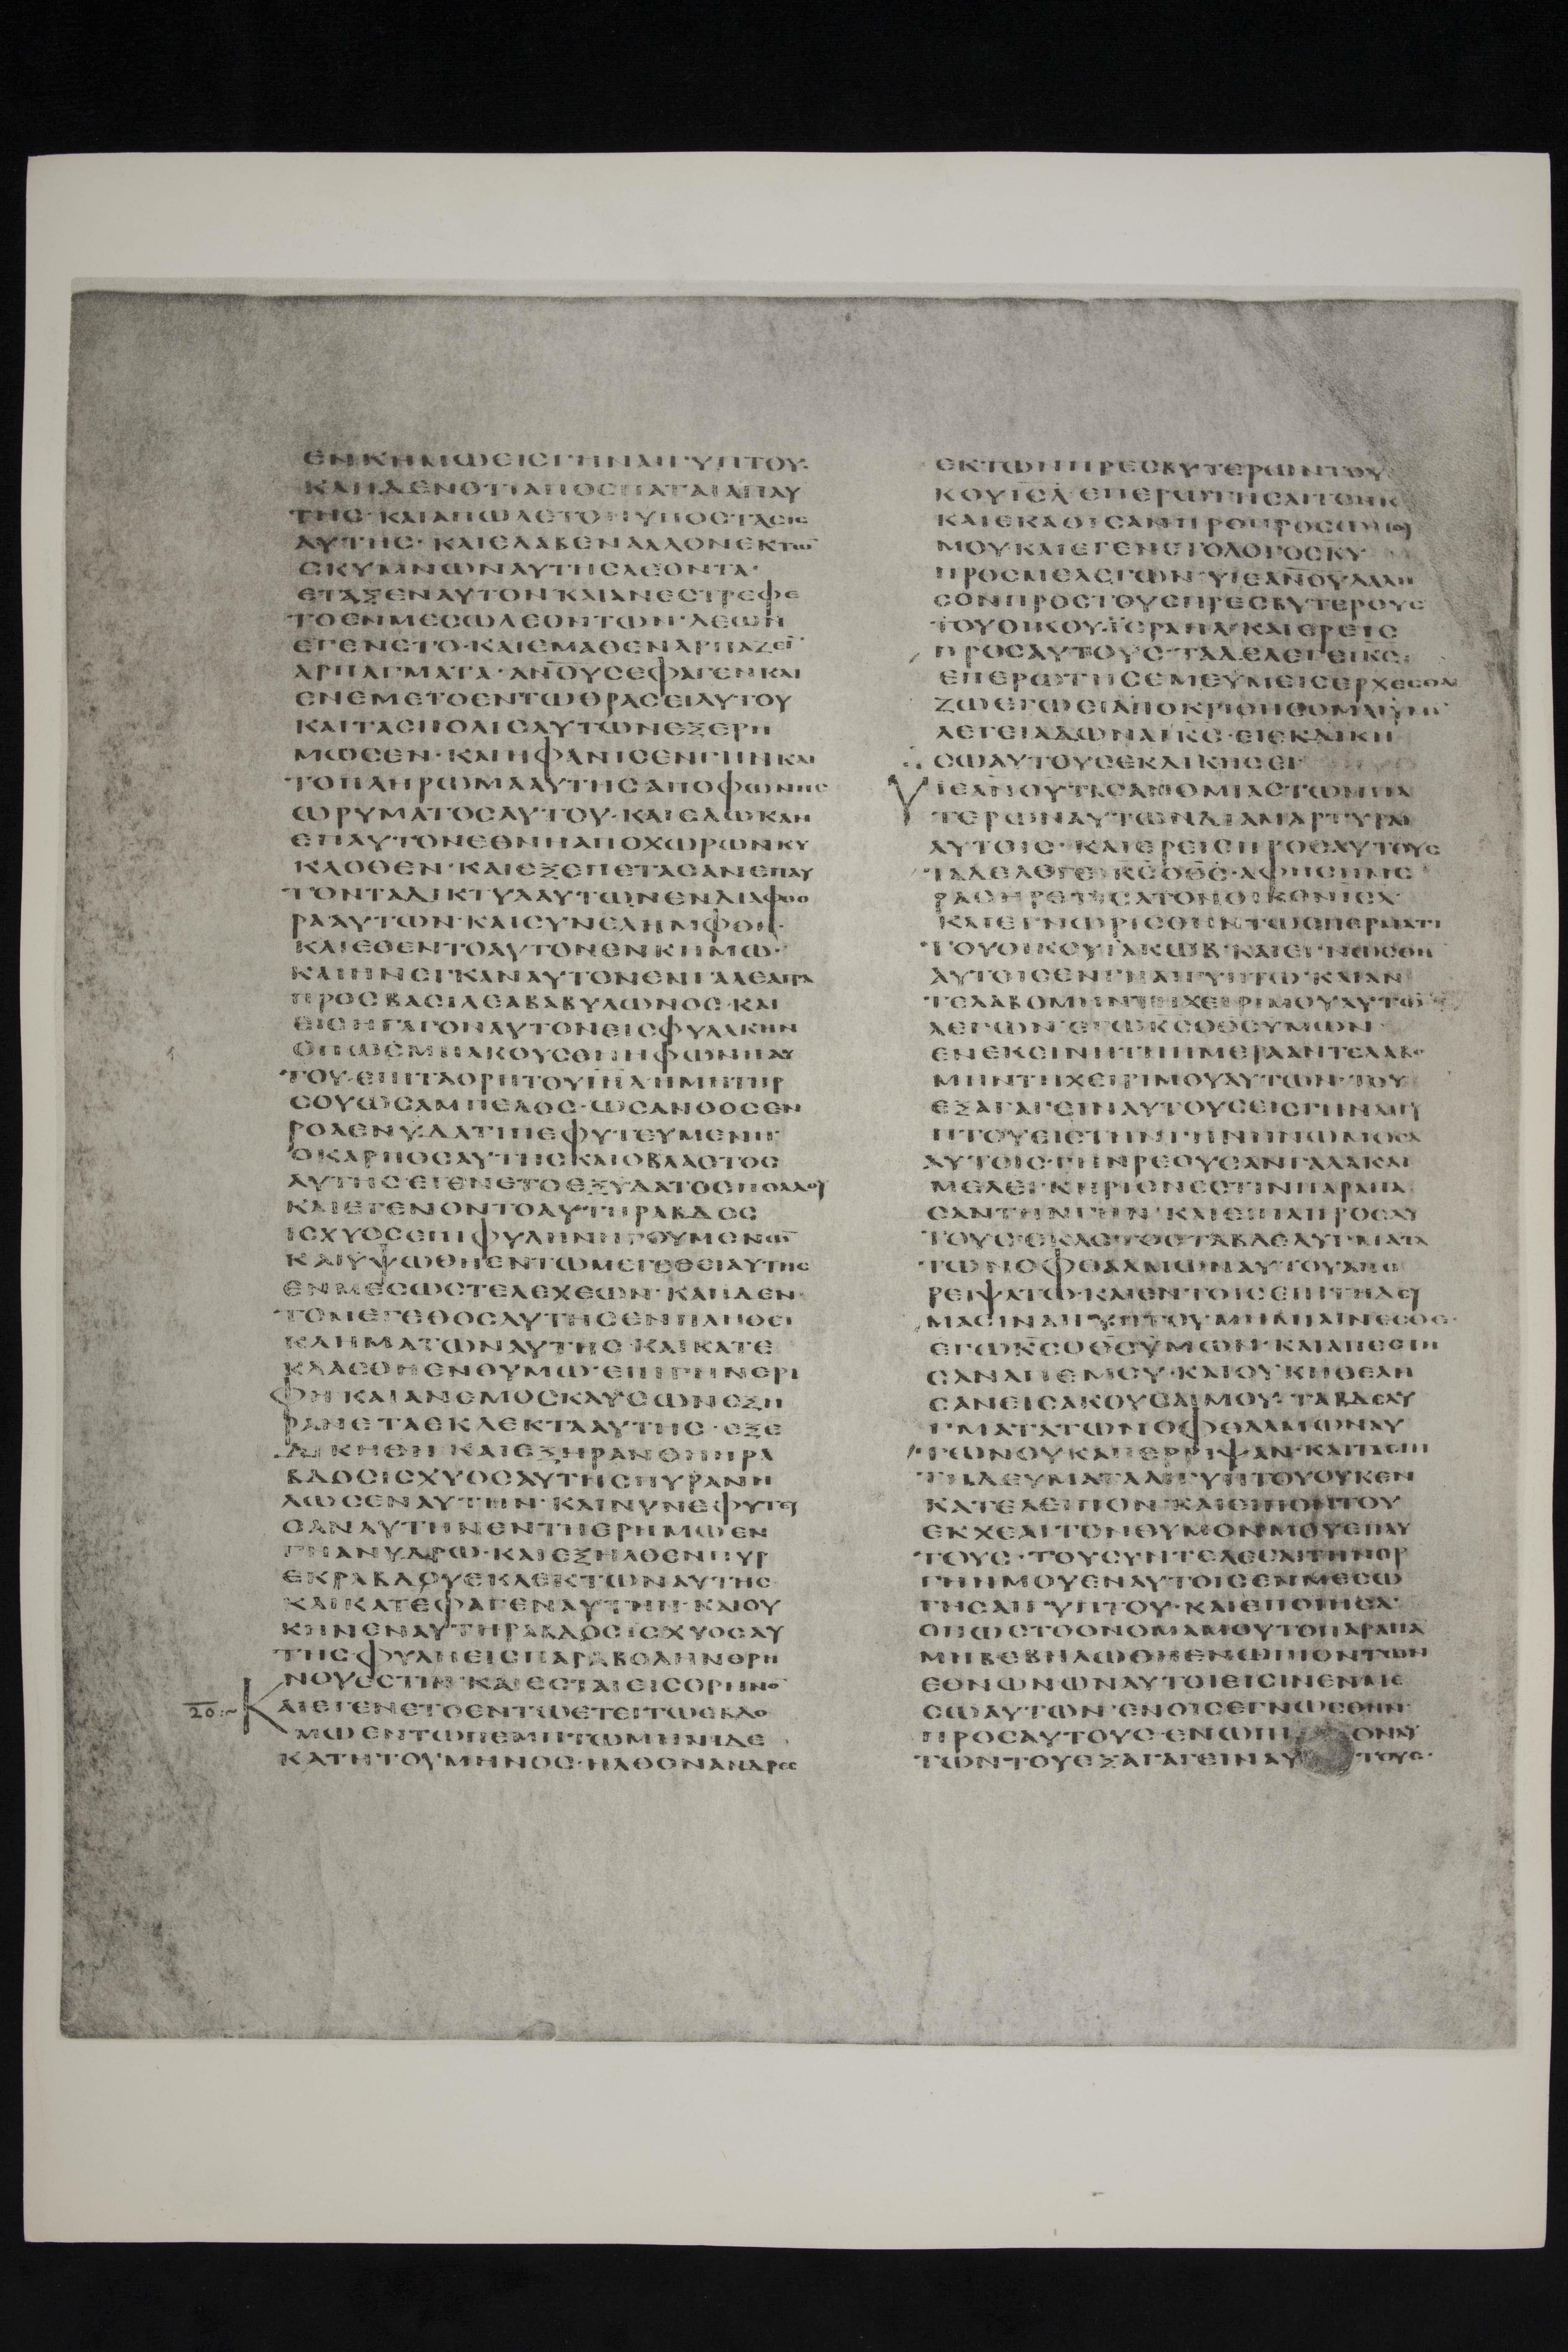 ΕΝΚΗΜΩΕΙΣΓΗΝΑΙΓΥΠΤΟΥ·
ΚΑΙΙΔΕΝΟΤΙΑΠΟΣΠΑΤΑΙΑΠΑΥ
ΤΗΣ·ΚΑΙΑΠΩΛΕΤΟΗΥΠΟΣΤΑΣΙΣ
ΑΥΤΗΣ·ΚΑΙΕΛΑΒΕΝΑΛΛΟΝΕΚΤΩ̅
ΣΚΥΜΝΩΝΑΥΤΗΣΛΕΟΝΤΑ·
ΕΤΑΞΕΝΑΥΤΟΝΚΑΙΑΝΕΣΤΡΕΦΕ
ΤΟΕΝΜΕΣΩΛΕΟΝΤΩΝ·ΛΕΩΝ
ΕΓΕΝΕΤΟ·ΚΑΙΕΜΑΘΕΝΑΡΠΑΖΕΙ̅
ΑΡΠΑΓΜΑΤΑ·ΑΝ̅ΟΥΣΕΦΑΓΕΝΚΑΙ
ΕΝΕΜΕΤΟΕΝΤΩΘΡΑΣΕΙΑΥΤΟΥ
ΚΑΙΤΑΣΠΟΛΙΣΑΥΤΩΝΕΞΕΡΗ
ΜΩΣΕΝ·ΚΑΙΗΦΑΝΙΣΕΝΓΗΝΚΑΙ
ΤΟΠΛΗΡΩΜΑΑΥΤΗΣΑΠΟΦΩΝΗΣ
ΩΡΥΜΑΤΟΣΑΥΤΟΥ·ΚΑΙΕΔΩΚΑΝ
ΕΠΑΥΤΟΝΕΘΝΗΑΠΟΧΩΡΩΝΚΥ
ΚΛΟΘΕΝ·ΚΑΙΕΞΕΠΕΤΑΣΑΝΕΠΑΥ
ΤΟΝΤΑΔΙΚΤΥΑΑΥΤΩΝΕΝΔΙΑΦΘΟ
ΡΑΑΥΤΩΝ·ΚΑΙΣΥΝΕΛΗΜΦΘΗ·
ΚΑΙΕΘΕΝΤΟΑΥΤΟΝΕΝΚΗΜΩ·
ΚΑΙΗΝΕΓΚΑΝΑΥΤΟΝΕΝΓΑΛΕΑΓΡΑ
ΠΡΟΣΒΑΣΙΛΕΑΒΑΒΥΛΩΝΟΣ·ΚΑΙ
ΕΙΣΗΓΑΓΟΝΑΥΤΟΝΕΙΣΦΥΛΑΚΗΝ
ΟΠΩΣΜΗΑΚΟΥΣΘΗΗΦΩΝΗΑΥ
ΤΟΥ·ΕΠΙΤΑΟΡΗΤΟΥΙΗ̅Λ·ΗΜΗΤΗΡ
ΣΟΥΩΣΑΜΠΕΛΟΣ·ΩΣΑΝΘΟΣΕΝ
ΡΟΑΕΝΥΔΑΤΙΠΕΦΥΤΕΥΜΕΝΗ·
ΟΚΑΡΠΟΣΑΥΤΗΣΚΑΙΟΒΛΑΣΤΟΣ
ΑΥΤΗΣ·ΕΓΕΝΕΤΟΕΞΥΔΑΤΟΣΠΟΛΛΟΥ
ΚΑΙΕΓΕΝΟΝΤΟΑΥΤΗΡΑΒΔΟΣ
ΙΣΧΥΟΣΕΠΙΦΥΛΗΝΗΓΟΥΜΕΝΩ̅
ΚΑΙΥΨΩΘΗΕΝΤΩΜΕΓΕΘΕΙΑΥΤΗΣ
ΕΝΜΕΣΩΣΤΕΛΕΧΕΩΝ·ΚΑΙΙΔΕΝ·
ΤΟΜΕΓΕΘΟΣΑΥΤΗΣΕΝΠΛΗΘΕΙ
ΚΛΗΜΑΤΩΝΑΥΤΗΣ·ΚΑΙΚΑΤΕ
ΚΛΑΣΘΗΕΝΘΥΜΩ·ΕΠΙΓΗΝΕΡΙ
ΦΗ·ΚΑΙΑΝΕΜΟΣΚΑΥΣΩΝΕΞΗ
ΡΑΝΕΤΑΕΚΛΕΚΤΑΑΥΤΗΣ·ΕΞΕ
ΔΙΚΗΘΗ·ΚΑΙΕΞΗΡΑΝΘΗΗΡΑ
ΒΔΟΣΙΣΧΥΟΣΑΥΤΗΣΠΥΡΑΝΗ
ΛΩΣΕΝΑΥΤΗΝ·ΚΑΙΝΥΝΕΦΥΤΕΥ
ΣΑΝΑΥΤΗΝΕΝΤΗΕΡΗΜΩΕΝ
ΓΗΑΝΥΔΡΩ·ΚΑΙΕΞΗΛΘΕΝΠΥΡ
ΕΚΡΑΒΔΟΥΕΚΛΕΚΤΩΝΑΥΤΗΣ
ΚΑΙΚΑΤΕΦΑΓΕΝΑΥΤΗΝ·ΚΑΙΟΥ
ΚΗΝΕΝΑΥΤΗΡΑΒΔΟΣΙΣΧΥΟΣΑΥ
ΤΗΣΦΥΛΗΕΙΣΠΑΡΑΒΟΛΗΝΘΡΗ
ΝΟΥΕΣΤΙΝ·ΚΑΙΕΣΤΑΙΕΙΣΘΡΗΝΟ̅
20:~ ΚΑΙΕΓΕΝΕΤΟΕΝΤΩΕΤΕΙΤΩΕΒΔΟ
ΜΩΕΝΤΩΠΕΜΠΤΩΜΗΝΙΔΕ
ΚΑΤΗΤΟΥΜΗΝΟΣ·ΗΛΘΟΝΑΝΔΡΕΣ
ΕΚΤΩΝΠΡΕΣΒΥΤΕΡΩΝΤΟΥ
ΚΟΥΙΣ̅Λ·ΕΠΕΡΩΤΗΣΑΙΤΟΝΚ
ΚΑΙΕΚΑΘΙΣΑΝΠΡΟΠΡΟΣΩΠΟΥ
ΜΟΥ·ΚΑΙΕΓΕΝΕΤΟΛΟΓΟΣΚΥ
ΠΡΟΣΜΕΛΕΓΩΝ·ΥΙΕΑΝ̅ΟΥΛΑΛΗ
ΣΟΝΠΡΟΣΤΟΥΣΠΡΕΣΒΥΤΕΡΟΥΣ
ΤΟΥΟΙΚΟΥ·ΙΣΡΑΗΛ·ΚΑΙΕΡΕΙΣ
ΠΡΟΣΑΥΤΟΥΣ·ΤΑΔΕΛΕΓΕΙΚΣ̅·
ΕΠΕΡΩΤΗΣΕΜΕΥΜΕΙΣΕΡΧΕΣΘΑΙ
ΖΩΕΓΩΕΙΑΠΟΚΡΙΘΗΣΟΜΑΙΥΜΙ̅
ΛΕΓΕΙΑΔΩΝΑΙΚΣ̅·ΕΙΕΚΔΙΚΗ
ΣΩΑΥΤΟΥΣΕΚΔΙΚΗΣΕΙ
ΥΙΕΑΝ̅ΟΥΤΑΣΑΝΟΜΙΑΣΤΩΝΠΑ
ΤΕΡΩΝΑΥΤΩΝΔΙΑΜΑΡΤΥΡΑΙ
ΑΥΤΟΙΣ·ΚΑΙΕΡΕΙΣΠΡΟΣΑΥΤΟΥΣ
ΤΑΔΕΛΕΓΕΙΚΣ̅ΟΘΣ̅·ΑΦΗΣΗΜΕ
ΡΑΣΗΡΕΤΙΣΑΤΟΝΟΙΚΟΝΙΣ̅Λ
ΚΑΙΕΓΝΩΡΙΣΘΗΝΤΩΣΠΕΡΜΑΤΙ
ΤΟΥΟΙΚΟΥΙΑΚΩΒ·ΚΑΙΕΓΝΩΣΘΗ
ΑΥΤΟΙΣΕΝΓΗΑΙΓΥΠΤΩ·ΚΑΙΑΝ
ΤΕΛΑΒΟΜΗΝΤΗΧΕΙΡΙΜΟΥΑΥΤΩ̅
ΛΕΓΩΝ·ΕΓΩΚΣ̅ΟΘΣ̅ΥΜΩΝ·
ΕΝΕΚΕΙΝΗΤΗΗΜΕΡΑΑΝΤΕΛΑΒΟ
ΜΗΝΤΗΧΕΙΡΙΜΟΥΑΥΤΩΝ·ΤΟΥ
ΕΞΑΓΑΓΕΙΝΑΥΤΟΥΣΕΚΓΗΣΑΙΓΥ
ΠΤΟΥΕΙΣΤΗΝΓΗΝΗΝΩΜΟΣΑ
ΑΥΤΟΙΣ·ΓΗΝΡΕΟΥΣΑΝΓΑΛΑΚΑΙ
ΜΕΛΕΙ·ΚΗΡΙΟΝΕΣΤΙΝΠΑΡΑΠΑ
ΣΑΝΤΗΝΓΗΝ·ΚΑΙΕΙΠΑΠΡΟΣΑΥ
ΤΟΥΣ·ΕΚΑΣΤΟΣΤΑΒΔΕΛΥΓΜΑΤΑ
ΤΩΝΟΦΘΑΛΜΩΝΑΥΤΟΥΑΠΟ
ΡΕΙΨΑΤΩ·ΚΑΙΕΝΤΟΙΣΕΠΙΤΗΔΕΥ
ΜΑΣΙΝΑΙΓΥΠΤΟΥΜΗΜΙΑΙΝΕΣΘΕ·
ΕΓΩΚΣ̅ΟΘΣ̅ΥΜΩΝ·ΚΑΙΑΠΕΣΤΗ
ΣΑΝΑΠΕΜΟΥ·ΚΑΙΟΥΚΗΘΕΛΗ
ΣΑΝΕΙΣΑΚΟΥΣΑΙΜΟΥ·ΤΑΒΔΕΛΥ
ΓΜΑΤΑΤΩΝΟΦΘΑΛΜΩΝΑΥ
ΤΩΝΟΥΚΑΠΕΡΡΙΨΑΝ·ΚΑΙΤΑΕΠΙ
ΤΗΔΕΥΜΑΤΑΑΙΓΥΠΤΟΥΟΥΚΕΝ
ΚΑΤΕΛΕΙΠΟΝ·ΚΑΙΕΙΠΟΝΤΟΥ
ΕΚΧΕΑΙΤΟΝΘΥΜΟΝΜΟΥΕΠΑΥ
ΤΟΥΣ·ΤΟΥΣΥΝΤΕΛΕΣΑΙΤΗΝΟΡ
ΓΗΝΜΟΥΕΝΑΥΤΟΙΣΕΝΜΕΣΩ
ΓΗΣΑΙΓΥΠΤΟΥ·ΚΑΙΕΠΟΙΗΣΑ·
ΟΠΩΣΤΟΟΝΟΜΑΜΟΥΤΟΠΑΡΑΠΑ̅
ΜΗΒΕΒΗΛΩΘΗΕΝΩΠΙΟΝΤΩΝ
ΕΘΝΩΝΩΝΑΥΤΟΙΕΙΣΙΝΕΝΜΕ
ΣΩΑΥΤΩΝ·ΕΝΟΙΣΕΓΝΩΣΘΗΝ
ΠΡΟΣΑΥΤΟΥΣ·ΕΝΩΠΙ ΟΝΑΥ
ΤΩΝ·ΤΟΥΕΞΑΓΑΓΕΙΝΑΥ ΤΟΥΣ·